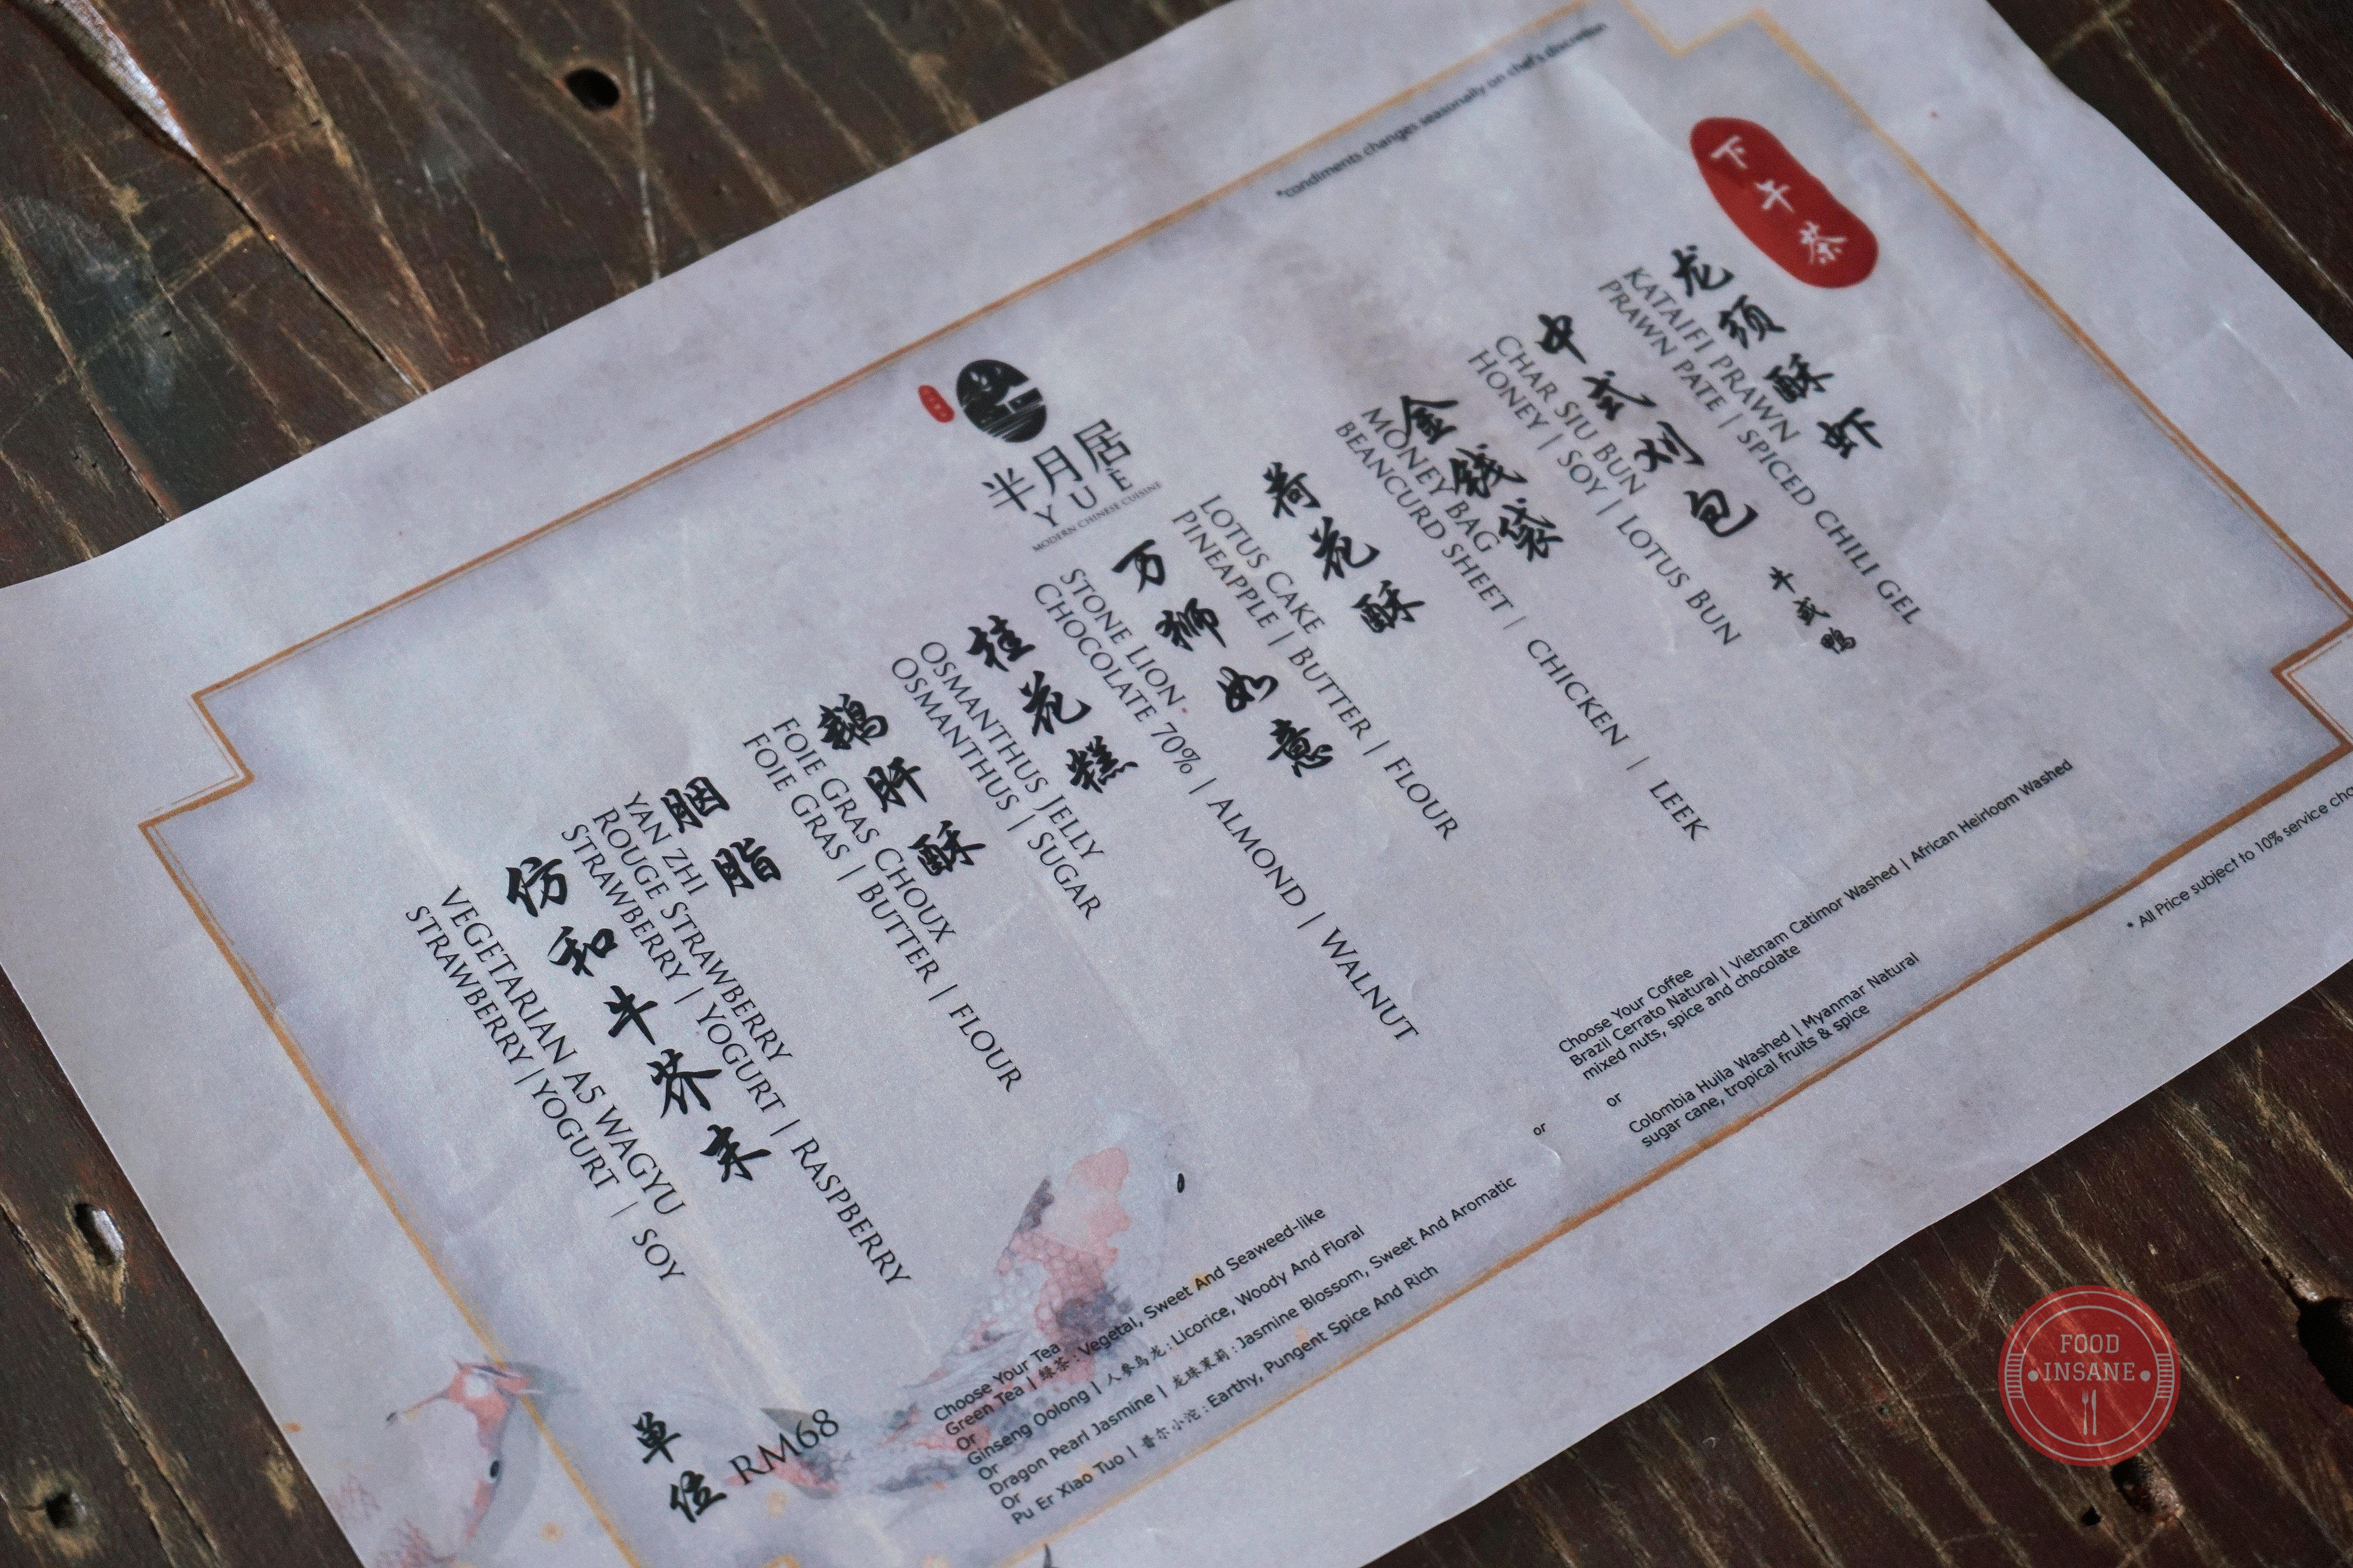 *condiments changes seasonally on chef's discretion
下午茶
半月居
YUE
MODERN CHINESE CUISINE
龙须酥虾
KATAIFI PRAWN
PRAWN PATE | SPICED CHILI GEL
中式刈包 牛或鸭
CHAR SIU BUN
HONEY | SOY | LOTUS BUN
金钱袋
MONEY BAG
BEANCURD SHEET | CHICKEN | LEEK
荷花酥
LOTUS CAKE
PINEAPPLE | BUTTER | FLOUR
万狮如意
STONE LION
CHOCOLATE 70% | ALMOND | WALNUT
桂花糕
OSMANTHUS JELLY
OSMANTHUS | SUGAR
鹅肝酥
FOIE GRAS CHOUX
FOIE GRAS | BUTTER | FLOUR
胭脂
YAN ZHI
ROUGE STRAWBERRY
STRAWBERRY | YOGURT | RASPBERRY
仿和牛芥末
VEGETARIAN A5 WAGYU
STRAWBERRY | YOGURT | SOY
单位 RM68
Choose Your Tea
Green Tea | 绿茶 : Vegetal, Sweet And Seaweed-like
Or
Ginseng Oolong | 人参乌龙 : Licorice, Woody And Floral
Or
Dragon Pearl Jasmine | 龙珠茉莉 : Jasmine Blossom, Sweet And Aromatic
Or
Pu Er Xiao Tuo | 普尔小沱 : Earthy, Pungent Spice And Rich
or
Choose Your Coffee
Brazil Cerrato Natural | Vietnam Catimor Washed | African Heirloom Washed
mixed nuts, spice and chocolate
or
Colombia Huila Washed | Myanmar Natural
sugar cane, tropical fruits & spice
* All Price subject to 10% service
FOOD
INSANE